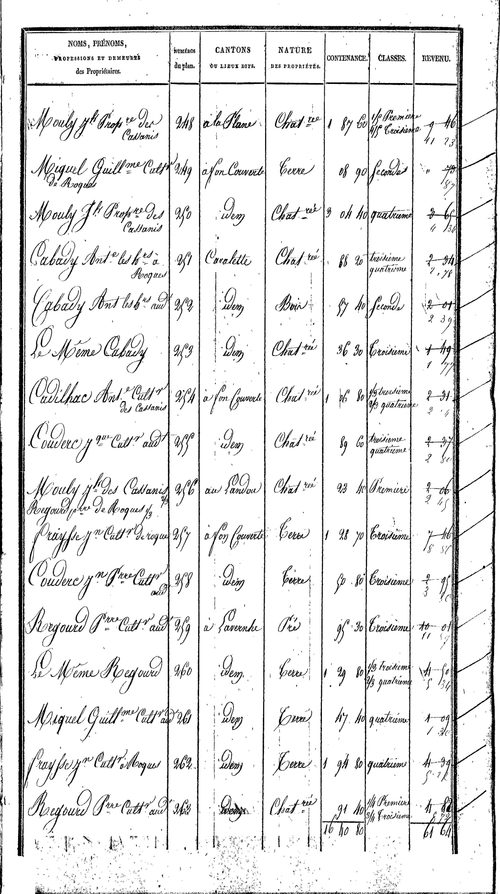 NOMS, PRÉNOMS, PROFESSIONS ET DEMEURES des Propriétaires. du plan. CANTONS OU LIEUX DITS. NATURE DES PROPRIÉTÉS. CONTENANCE. CLASSES. REVENU.
Mouly Jh Propre des Cassanis 248 à la Plane Chat. rée 1 87 60 1/5 Première 4/5 Troisième 9 46
Miquel Guillme Cultr de Roques 249 à fon Couverte Terre 08 90 Seconde
Mouly Jh Propre des Cassanis 250 idem Chat. rée 3 04 40 quatrième 3 65
Cabady Ante les hrs à Roques 251 Cavalette Chat. rée 68 20 troisième quatrième 2 34
Cabady Ant les hrs audt 252 idem Bois 57 40 Seconde 2 01
Le Même Cabady 253 idem Chat. rée 36 30 Troisième 1 49
Cadilhac Ante Cultr des Cassanis 254 à fon Couverte Chat. rée 1 06 80 1/3 troisième 2/3 quatrième 2 31
Couderc Jques Cultr audt 255 idem Chat. rée 89 60 troisième quatrième 2 37
Mouly Jh des Cassanis 2/3 Regourd pre de Roques 1/3 256 au Landou Chat. rée 23 40 Première 2 06
Fraysse Jn Cultr de roques 257 à fon Couverte Terre 1 28 70 Troisième 7 46
Couderc Jn Pre Cultr audt 258 idem Terre 50 80 Troisième 2 95
Regourd Prre Cultr audt 259 à Lavernhe Pré 95 30 Troisième 10 01
Le Même Regourd 260 idem Terre 1 29 80 1/3 troisième 2/3 quatrième 4 50
Miquel Guillme Cultr audt 261 idem Terre 47 40 quatrième 1 09
Fraysse Jn Cultr à Roques 262 idem Terre 1 94 80 quatrième 4 39
Regourd Prre Cultr audt 263 idem Chat. rée 91 40 1/4 Première 3/4 Troisième 4 82
16 40 80 61 64